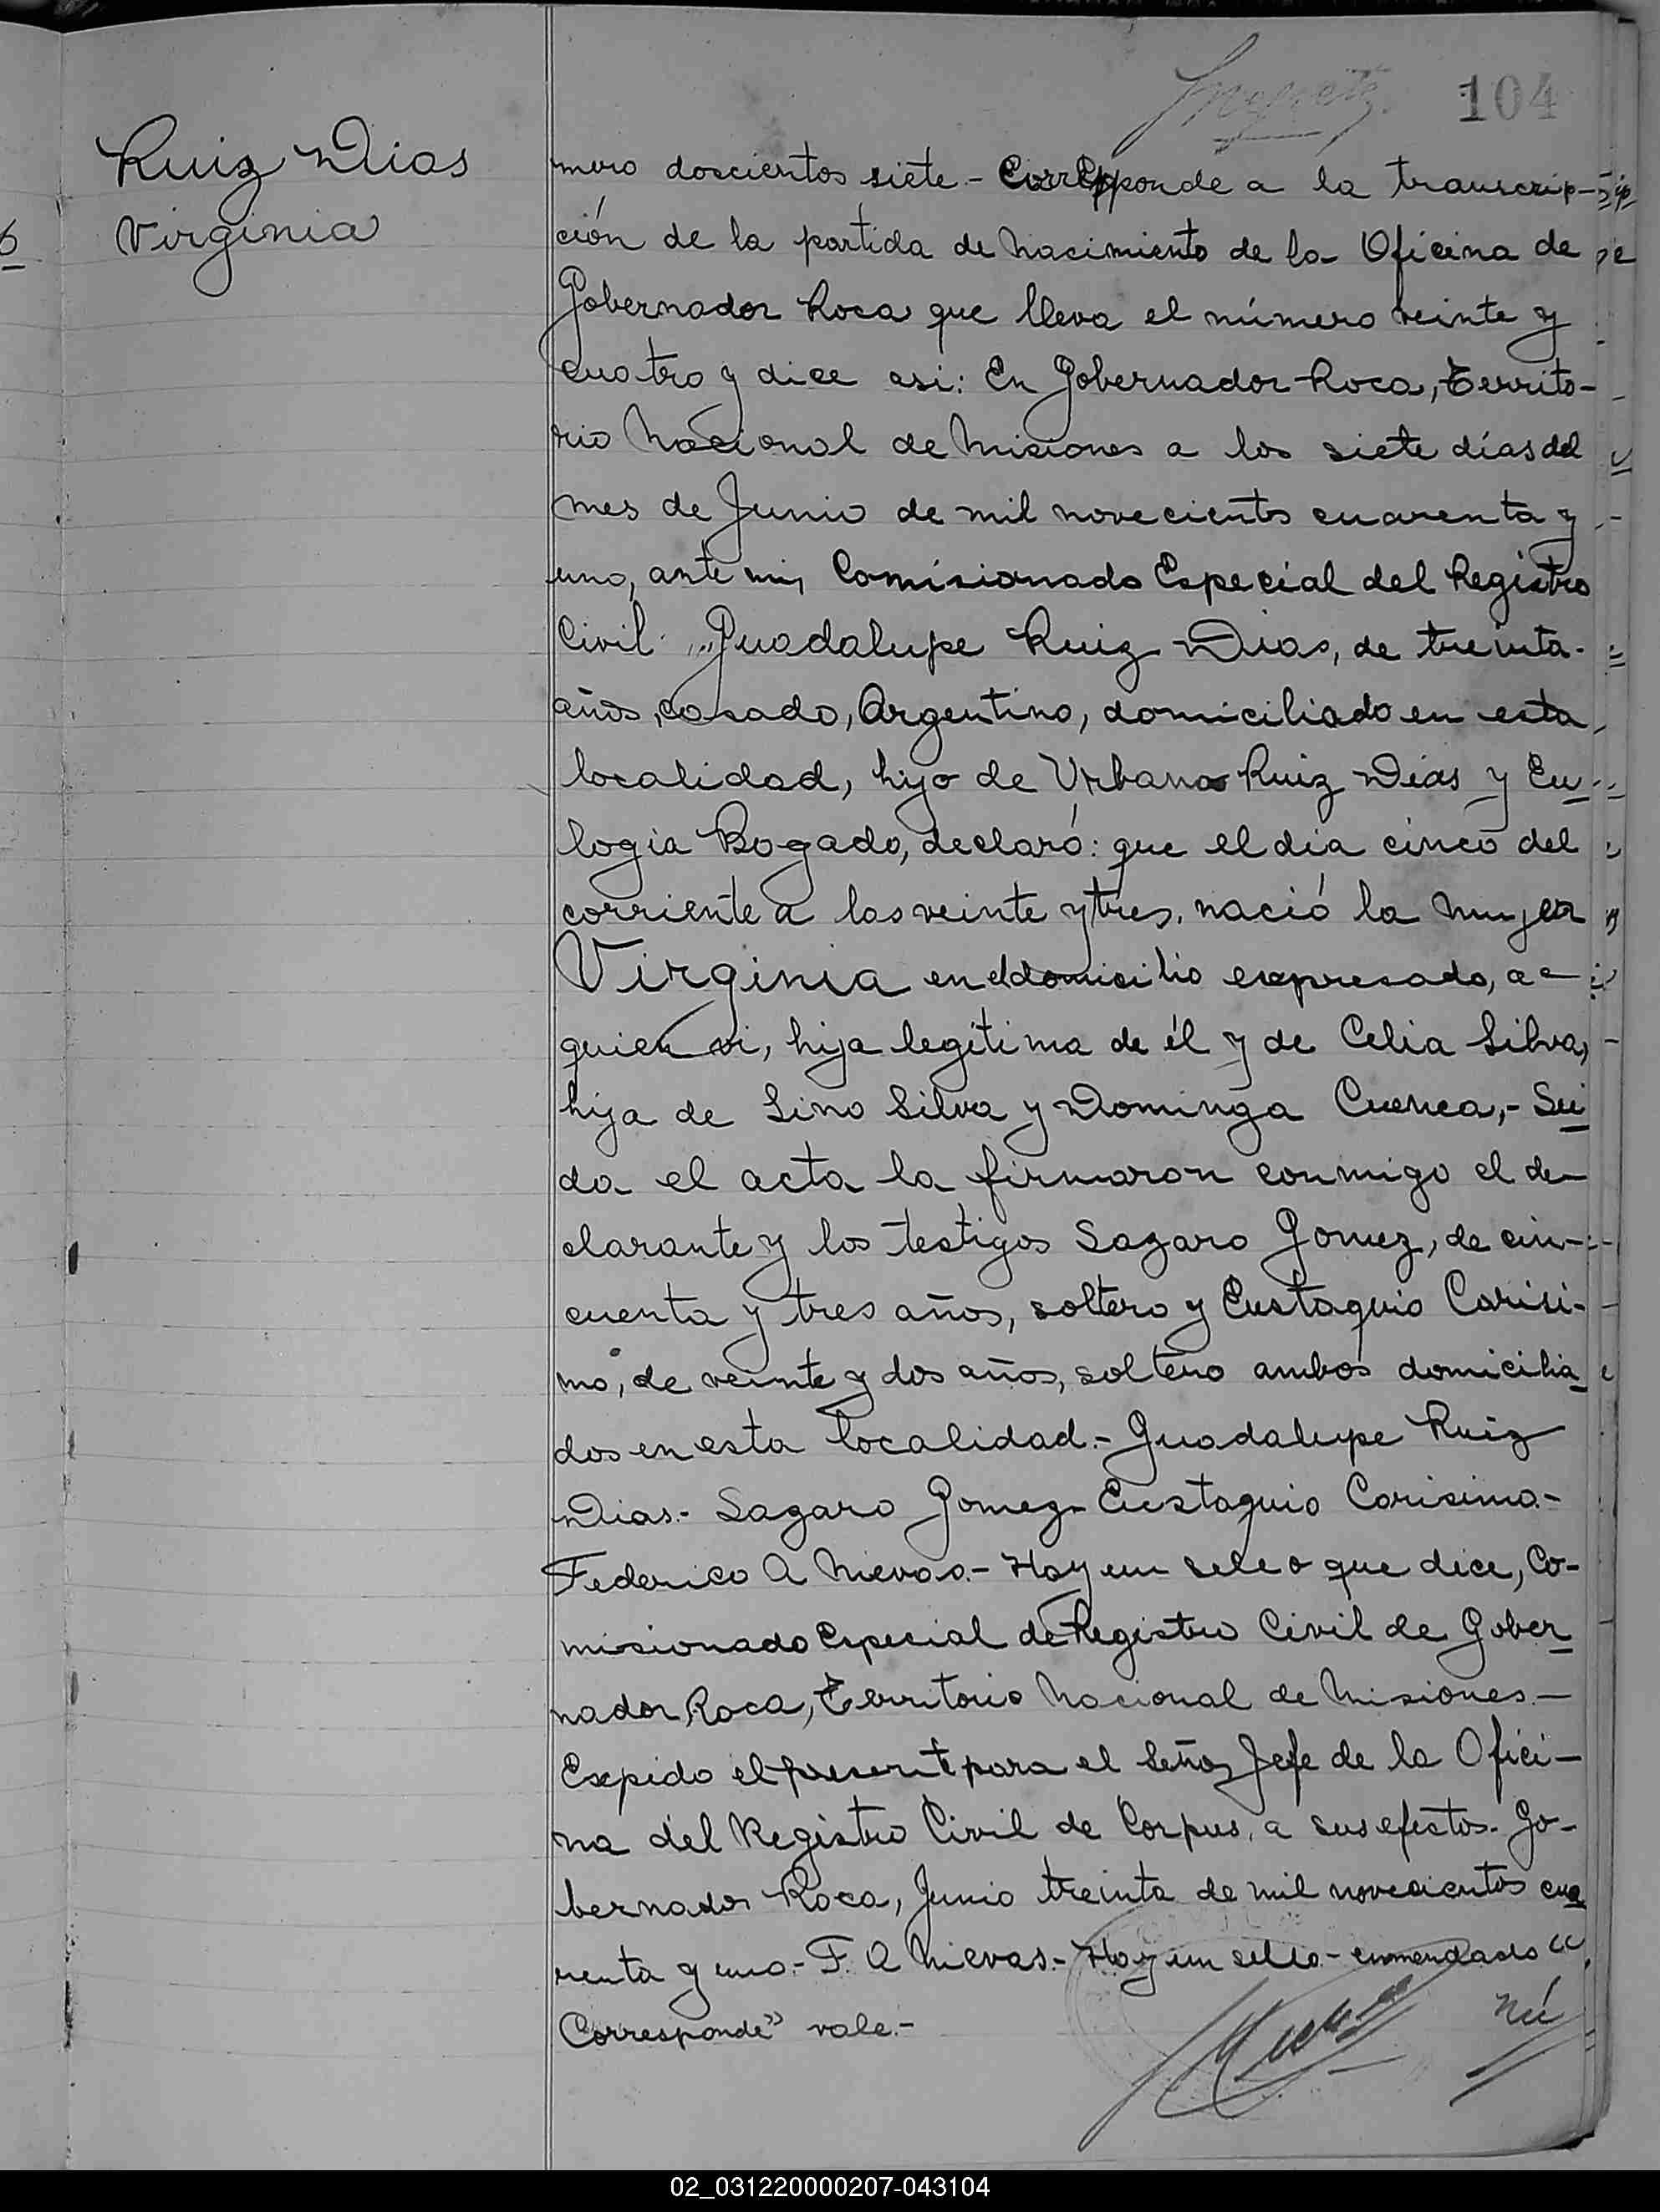 104
Ruiz Dias
Virginia
mero doscientos siete.- Corresponde a la transcrip-
ción de la partida de nacimiento de la Oficina de
Gobernador Roca que lleva el número veinte y
cuatro y dice asi: En Gobernador Roca, Territo-
rio Nacional de Misiones a los siete días del
mes de Junio de mil novecientos cuarenta y
uno, ante mi, Comisionado Especial del Registro
Civil Guadalupe Ruiz Dias, de treinta
años, casado, Argentino, domiciliado en esta
localidad, hijo de Urbano Ruiz Dias y Eu
logia Bogado, declaró: que el dia cinco del
corriente a las veinte y tres, nació la mujer
Virginia en el domicilio expresado, a-
quien vi, hija legítima de él y de Celia Silva,
hija de Lino Silva y Dominga Cuenca,- Lei
da el acta la firmaron conmigo el de-
clarante y los testigos Lazaro Gomez, de cin-
cuenta y tres años, soltero y Eustaquio Carisi-
mo, de veinte y dos años, soltero ambos domicilia
dos en esta localidad.- Guadalupe Ruiz
Dias.- Lazaro Gomez- Eustaquio Carisimo.-
Federico A Nievas.- Hay un sello que dice, Co-
misionado Especial de Registro Civil de Gober
nador Roca, Territorio Nacional de Misiones.-
Expido el presente para el Señor Jefe de la Ofici-
na del Registro Civil de Corpus, a sus efectos.- Go-
bernador Roca, Junio treinta de mil novecientos cua
renta y uno.- F. A Nievas.- Hay un sello.- enmendado "
Corresponde" vale.-
Nú
02_031220000207-043104